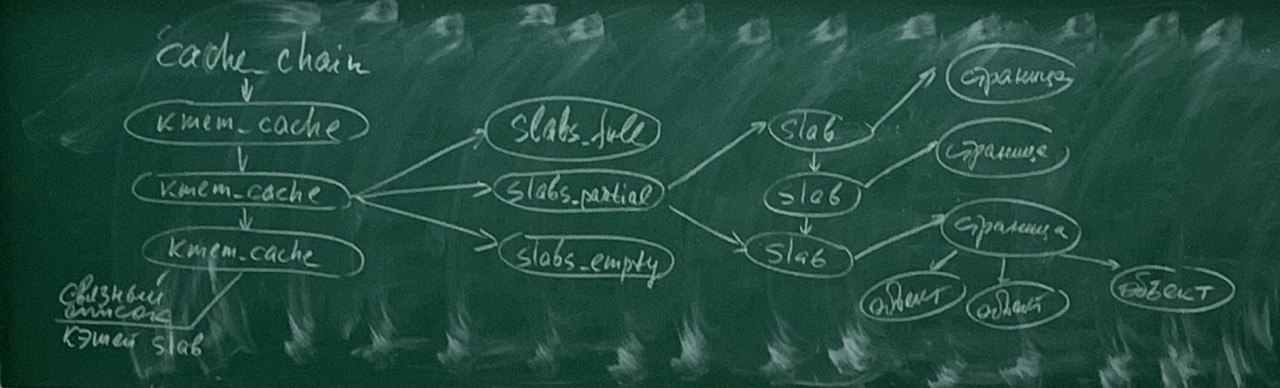 cache_chain
kmem_cache
kmem_cache
kmem_cache
связный
список
кэшей slab
slabs_full
slabs_partial
slabs_empty
slab
slab
slab
страница
страница
страница
объект
объект
объект